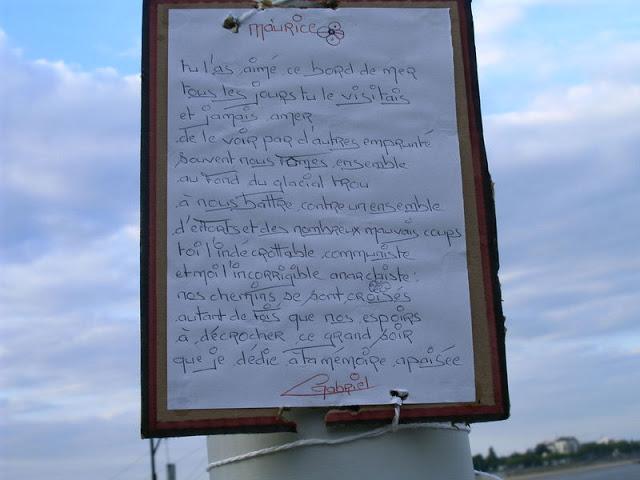 MAURICE
tu l'as aimé ce bord de mer
tous les jours tu le visitais
et jamais amer
de le voir par d'autres emprunté
souvent nous fûmes ensemble
au fond du glacial trou
à nous battre contre un ensemble
d'efforts et des nombreux mauvais coups
toi l'indécrottable communiste
et moi l'incorrigible anarchiste :
nos chemins se sont croisés
autant de fois que nos espoirs
à décrocher ce grand soir
que je dédie à ta mémoire apaisée
Gabriel